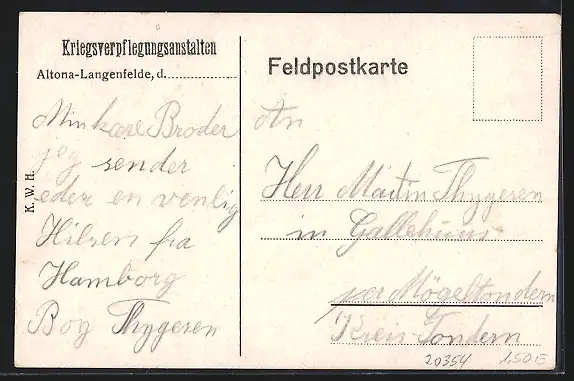 Kriegsverpflegungsanstalten
Altona-Langenfelde, d.
Min kære Broder
jeg sender
eder en venlig
Hilsen fra
Hamborg
Boy Thygesen
K. W. H.
Feldpostkarte
An
Herr Martin Thygesen
in Gallehuus
per Mögeltondern
Kreis Tondern
20354 1,50 E